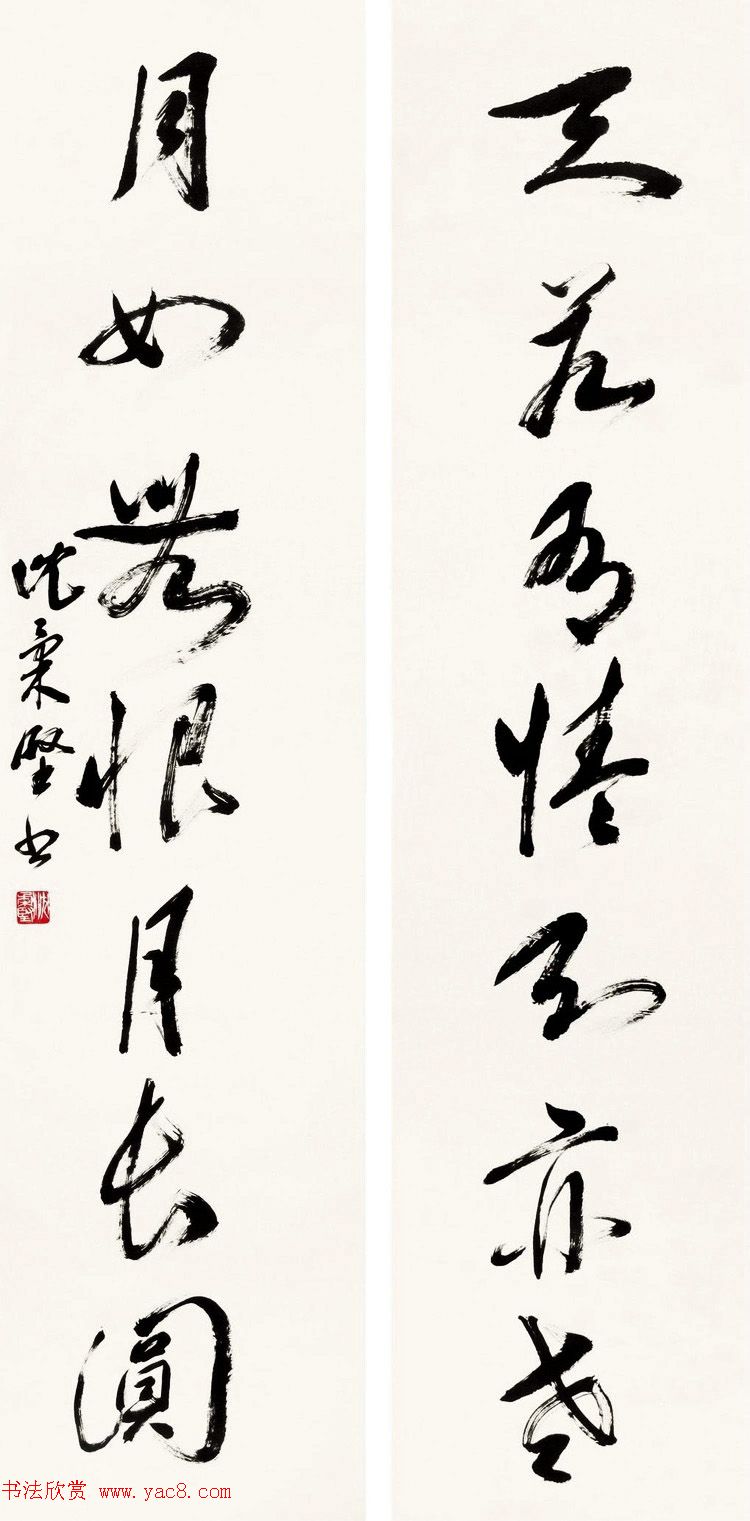 天若有情天亦老
月如無恨月長圓
沈柔堅书
书法欣赏 www.yac8.com